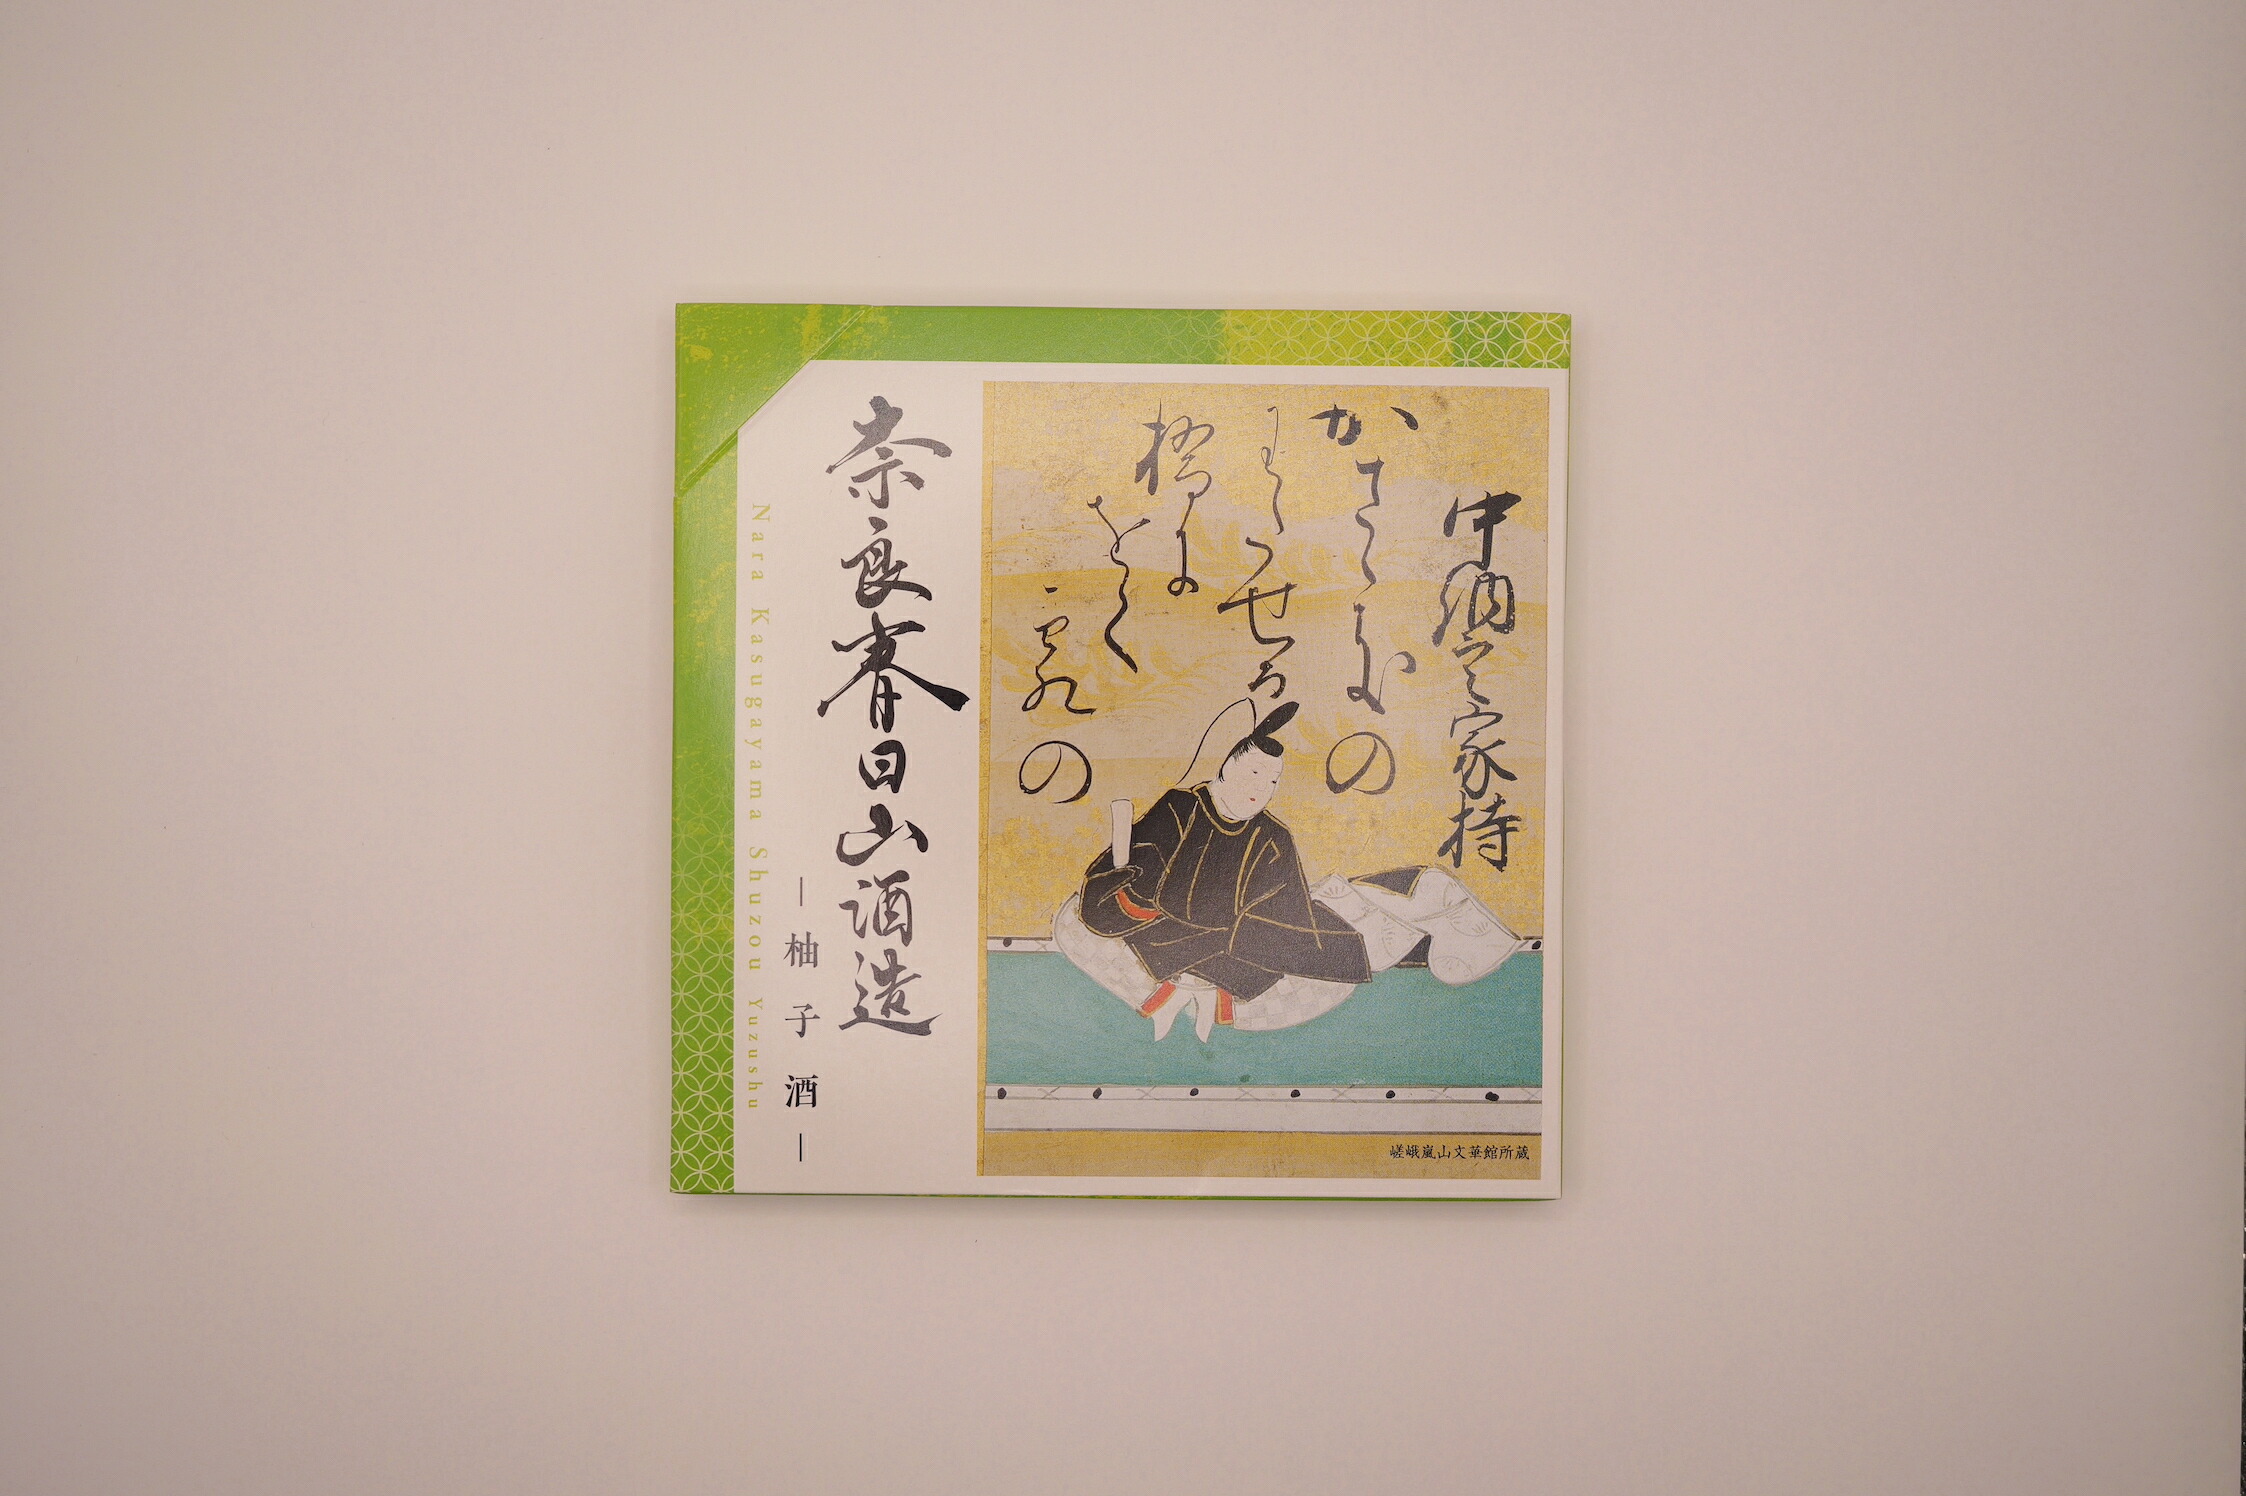 中納言家持
かさゝきの
わたせる
橋に
をく
霜の
嵯峨嵐山文華館所蔵
奈良春日山酒造
―柚子酒―
Nara Kasugayama Shuzou Yuzushu